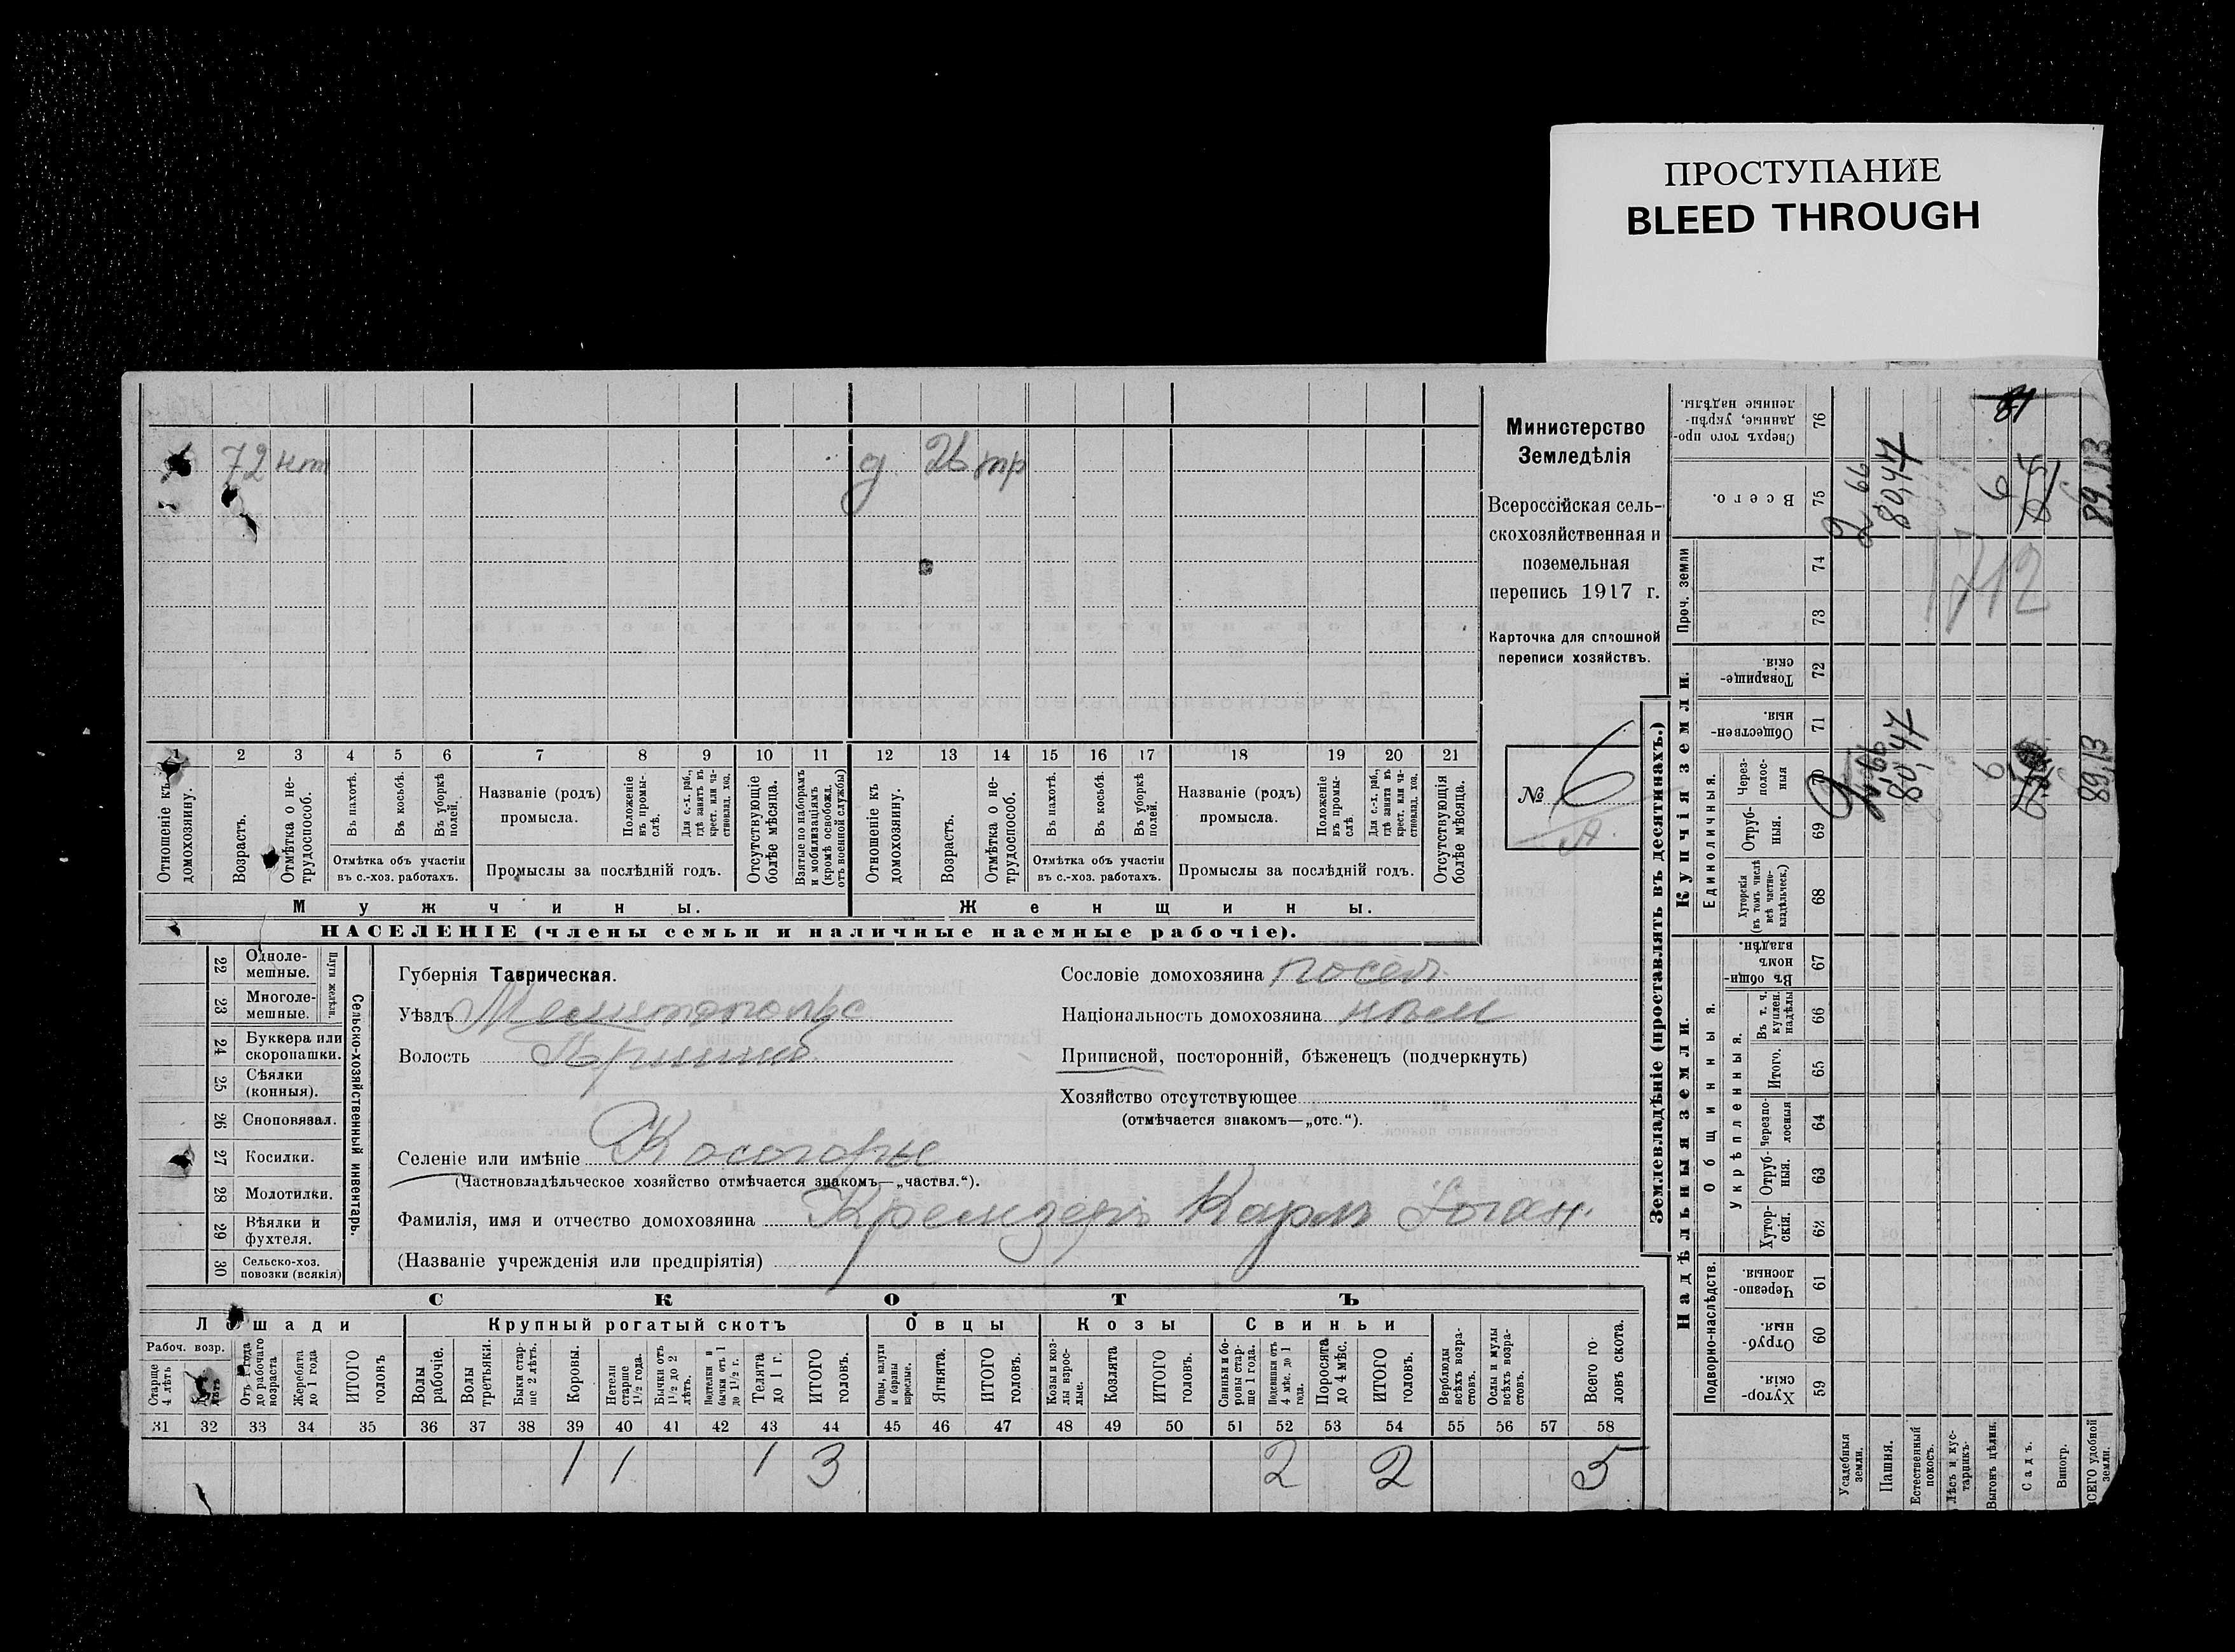 ПРОСТУПАНИЕ
BLEED THROUGH
72 нт
д 26 тр
1 2 3 4 5 6 7 8 9 10 11 12 13 14 15 16 17 18 19 20 21
Отношеніе къ домохозяину.
Возрастъ.
Отмѣтка о не-
трудоспособ.
Въ пахотѣ.
Въ косьбѣ.
Въ уборкѣ
полей.
Отмѣтка объ участіи
въ с.-хоз. работахъ.
Названіе (родъ)
промысла.
Положеніе
въ промы-
слѣ.
Для с.-х. раб.,
гдѣ занятъ въ
крест. или ча-
стновлад. хоз.
Промыслы за послѣдній годъ.
Отсутствующіе
болѣе мѣсяца.
Взятые по наборамъ
и мобилизаціямъ
(кромѣ освобожд.
отъ военной службы)
Отношеніе къ
домохозяину.
Возрастъ.
Отмѣтка о не-
трудоспособ.
Въ пахотѣ.
Въ косьбѣ.
Въ уборкѣ
полей.
Отмѣтка объ участіи
въ с.-хоз. работахъ.
Названіе (родъ)
промысла.
Положеніе
въ промы-
слѣ.
Для с.-х. раб.,
гдѣ занята въ
крест. или ча-
стновлад. хоз.
Промыслы за послѣдній годъ.
Отсутствующія
болѣе мѣсяца.
Мужчины.
Женщины.
НАСЕЛЕНІЕ (члены семьи и наличные наемные рабочіе).
Министерство
Земледѣлія
Всероссійская сель-
скохозяйственная и
поземельная
перепись 1917 г.
Карточка для сплошной
переписи хозяйствъ.
№ 6
А.
22 Одноле-
мешные.
23 Многоле-
мешные.
Плуги желѣзн.
24 Буккера или
скоропашки.
25 Сѣялки
(конныя).
26 Сноповязал.
27 Косилки.
28 Молотилки.
29 Вѣялки и
фухтеля.
30 Сельско-хоз.
повозки (всякія)
Сельско-хозяйственный инвентарь.
Губернія Таврическая.
Уѣздъ Мелитопольс
Волость Пришиб.
Селеніе или имѣніе Косогоры
(Частновладѣльческое хозяйство отмѣчается знакомъ—„частвл.“).
Фамилія, имя и отчество домохозяина Кремзеръ Карлъ Іоган.
(Названіе учрежденія или предпріятія)
Сословіе домохозяина посел.
Національность домохозяина нѣм
Приписной, посторонній, бѣженец (подчеркнуть)
Хозяйство отсутствующее
(отмѣчается знакомъ—„отс.“).
СКОТЪ
Лошади
Крупный рогатый скотъ
Овцы
Козы
Свиньи
Рабоч. возр.
Старше
4 лѣтъ
Отъ 1 года
до рабочаго
возраста
Жеребята
до 1 года
ИТОГО
головъ
Волы
рабочіе.
Волы
третьяки.
Быки стар-
ше 2 лѣтъ.
Коровы.
Нетели
старше
1½ года.
Бычки отъ
1½ до 2
лѣтъ.
Подтелки и
бычки отъ 1
до 1½ г.
Телята
до 1 г.
ИТОГО
головъ.
Овцы, валухи
и бараны
взрослые.
Ягнята.
ИТОГО
головъ.
Козы и коз-
лы взрос-
лые.
Козлята
ИТОГО
головъ.
Свиньи и бо-
ровы стар-
ше 1 года.
Подсвинки отъ
4 мѣс. до 1
года.
Поросята
до 4 мѣс.
ИТОГО
головъ.
Верблюды
всѣхъ возра-
стовъ.
Ослы и мулы
всѣхъ возра-
стовъ.
Всего го-
ловъ скота.
31 32 33 34 35 36 37 38 39 40 41 42 43 44 45 46 47 48 49 50 51 52 53 54 55 56 57 58
1 1 1 3 2 2 5
Землевладѣніе (проставлять въ десятинахъ.)
Надѣльныя земли.
Купчія земли.
Проч. земли
Подворно-наслѣдств.
Общинныя.
Укрѣпленныя.
Единоличныя.
59 Хутор-
скія.
60 Отруб-
ныя.
61 Черезпо-
лосныя.
62 Хутор-
скія.
63 Отруб-
ныя.
64 Черезпо-
лосныя
65 Итого.
66 Въ т. ч.
куплен.
надѣлы
67 Въ общи-
номъ
владѣн.
68 Хуторскія
(въ томъ числѣ
всѣ частно-
владѣльческ.)
69 Отруб-
ныя.
Через-
полос-
ныя
71 Обществен-
ныя.
72 Товарище-
скія.
73
74
75 Всего.
76 Сверхъ того про-
данные, укрѣп-
ленные надѣлы.
Усадебныя
земли.
2 66
Пашня.
80,47
80,47
Естественный
покосъ.
Лѣсъ и кус-
тарникъ.
Выгонъ цѣлин.
6
6
Садъ.
Виногр.
ВСЕГО удобной
земли.
89,13
89,13
1712